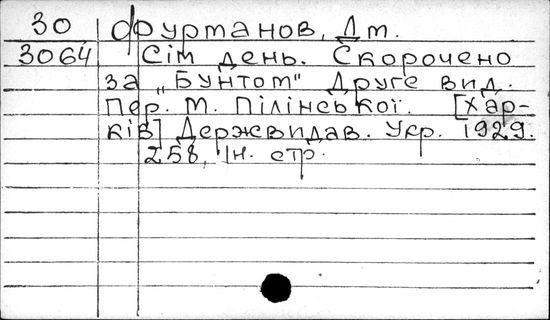 30 Фурманов, Дм.
3064 Сім день. Скорочено
за „Бунтом" Друге вид.
Пер. М. Пілінської. [Хар-
ків] Держвидав. Укр. 1929.
258, Iн. стр.